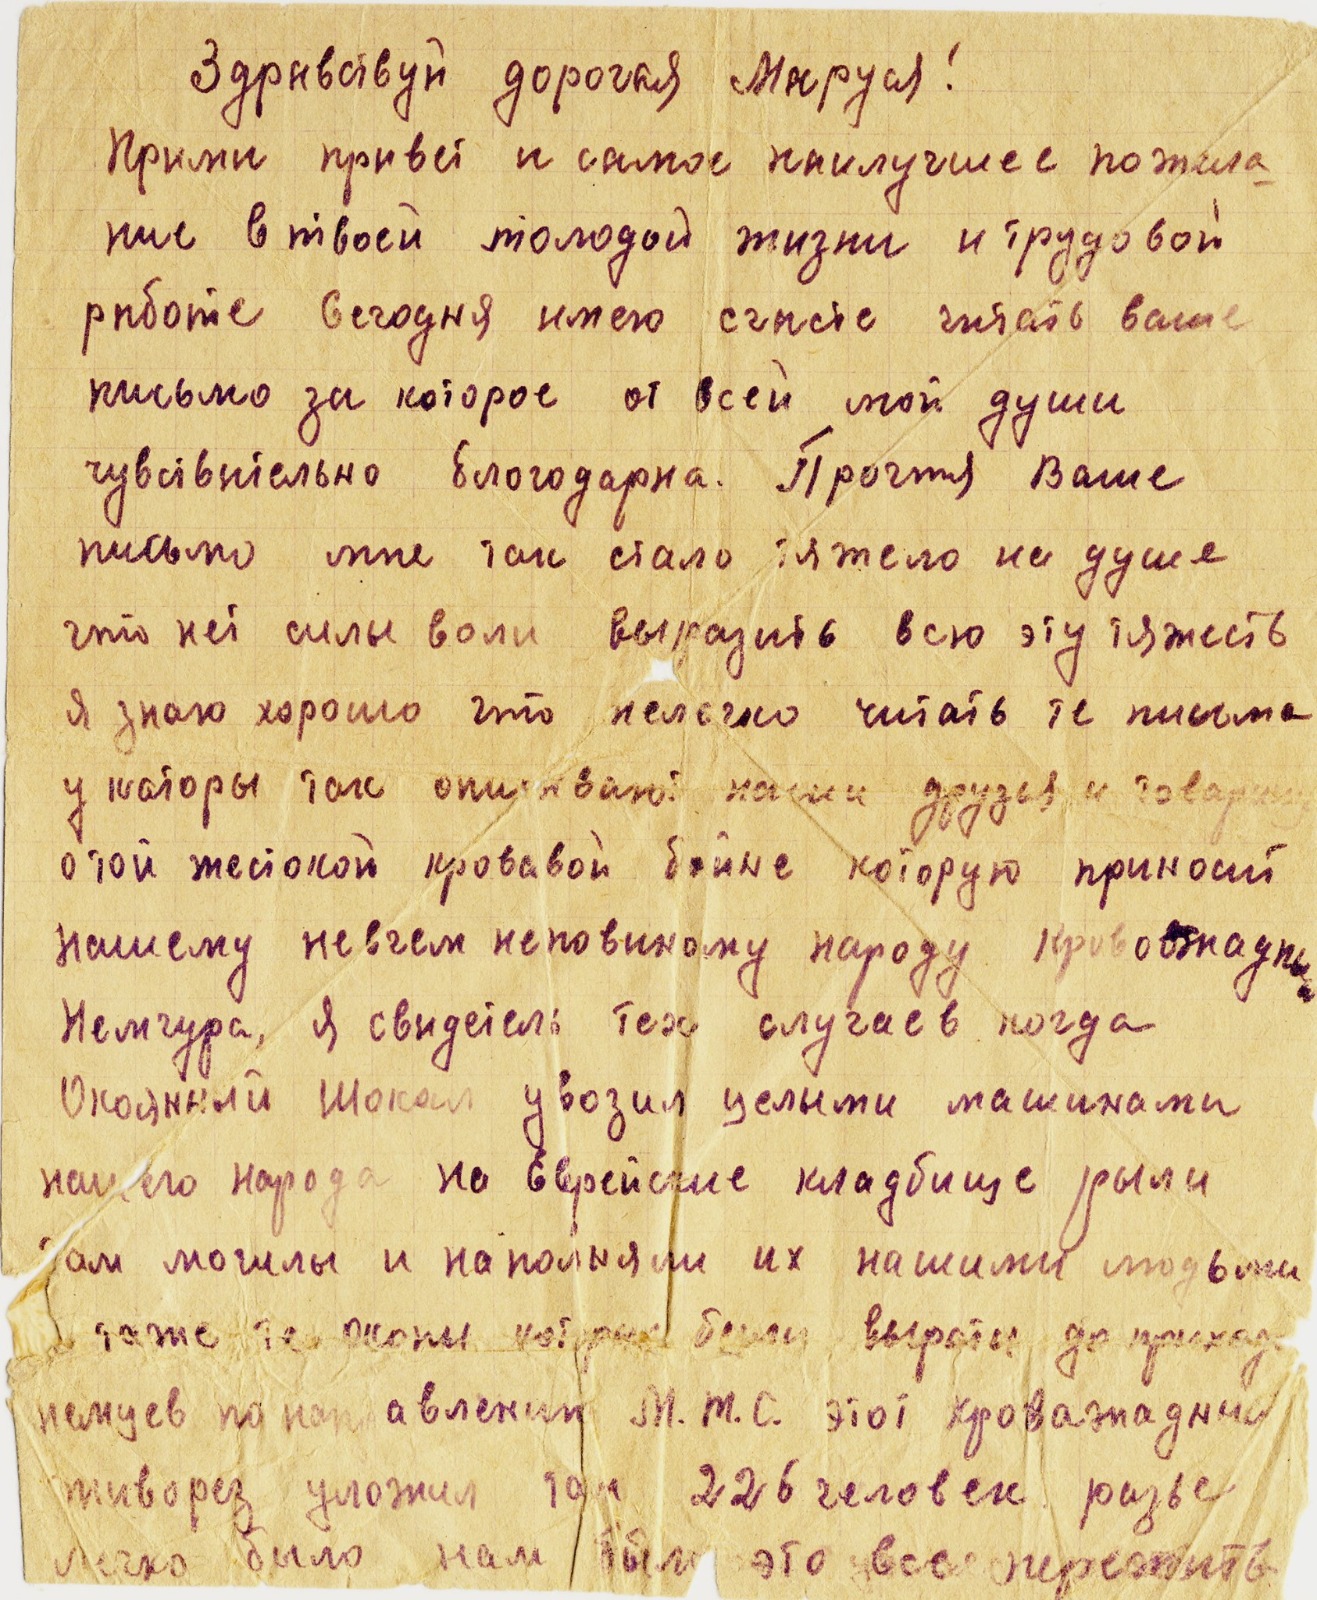 Здравствуй дорогая Маруся!
Прими привет и самое наилучшее пожела-
ние в твоей молодой жизни и трудовой
работе Сегодня имею счасте читать ваше
письмо за которое от всей мой души
чувствительно благодарна. Прочтя Ваше
письмо мне так стало тяжело на душе
что нет силы воли выразить всю эту тяжесть
я знаю хорошо что нелегко читать те письма
у каторы так описивают наши друзья и товарищ
о той жестокой кровавой бойне которую приносит
нашему невчем неповиному народу кровожадны
Немчура, Я свидетель тех случаев когда
Окоянный Шокал увозил целыми машинами
нашего народа на Еврейские кладбище рыли
там могилы и наполняли их нашими людьми
таже те окопы которые были вырыты до приход
немцев по направлении М.Т.С. этот кроважадный
живорез уложил там 226 человек разве
легко было нам было это все пережить